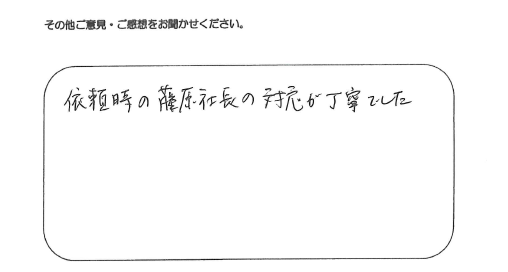 その他ご意見・ご感想をお聞かせください。
依頼時の藤原社長の対応が丁寧でした